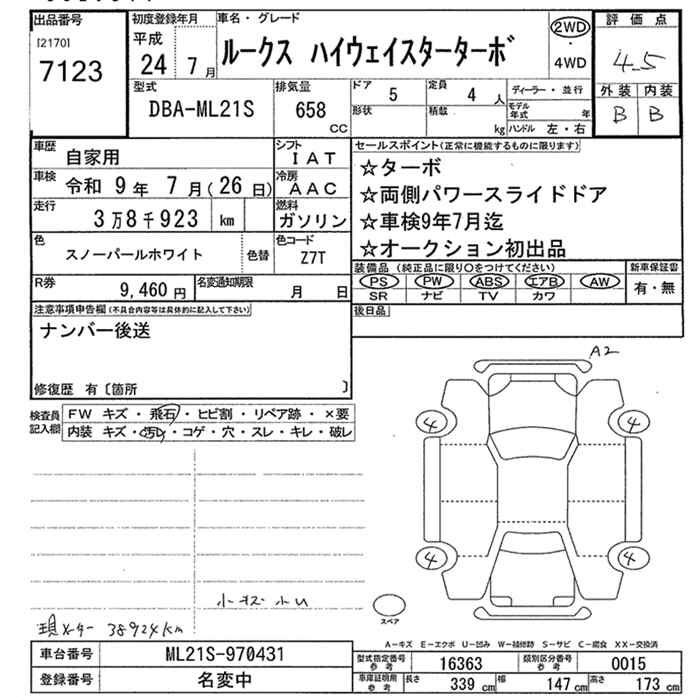 出品番号
[2170]
7123
初度登録年月
平成
24 7 月
車名・グレード
ルークス ハイウェイスターターボ
2WD
・
4WD
評価点
4.5
外装 内装
B B
型式
DBA-ML21S
排気量
658
CC
ドア 5
定員 4 人
形状
積載 kg
ディーラー・並行
モデル年式 年
ハンドル 左・右
車歴 自家用
シフト IAT
車検 令和 9年 7月(26日)
冷房 AAC
走行 3万8千923 km
燃料 ガソリン
色 スノーパールホワイト 色替
色コード Z7T
R券 9,460 円
名変通知期限 月 日
セールスポイント(正常に機能するものに限ります)
☆ターボ
☆両側パワースライドドア
☆車検9年7月迄
☆オークション初出品
装備品 (純正品に限り〇をつけてください)
PS PW ABS エアB AW
SR ナビ TV カワ
新車保証書
有・無
後日品
注意事項申告欄(不具合内容等は具体的に記入して下さい)
ナンバー後送
修復歴 有〔箇所 〕
検査員記入欄
FW キズ・飛石・ヒビ割・リペア跡・×要
内装 キズ・汚れ・コゲ・穴・スレ・キレ・破レ
A2
4 4
4 4
スペア
小キズ 小U
現メーター 38924km
A－キズ E－エクボ U－凹み W－補修跡 S－サビ C－腐食 XX－交換済
車台番号 ML21S-970431
登録番号 名変中
型式指定番号参考 16363
類別区分番号参考 0015
車庫証明用参考 長さ 339 cm 幅 147 cm 高さ 173 cm